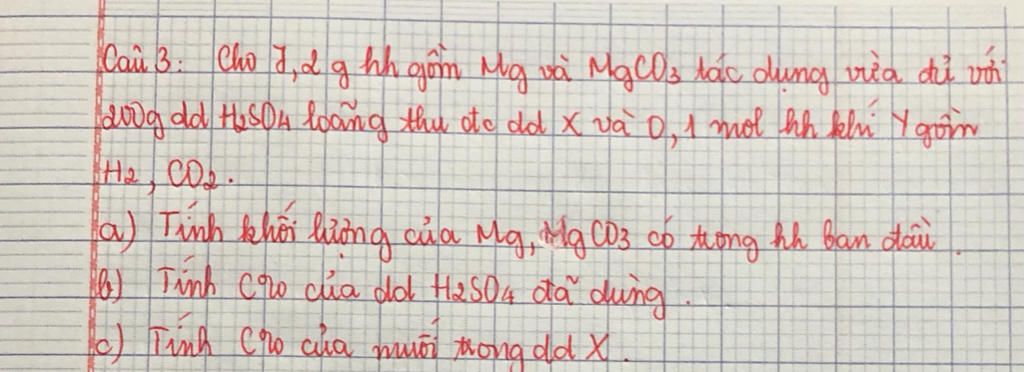 Câu 3: Cho 7,2 g hh gồm Mg và MgCO3 tác dụng vừa đủ với
200g dd H2SO4 loãng thu đc dd X và 0,1 mol hh khí Y gồm
H2, CO2.
a) Tính khối lượng của Mg, MgCO3 có trong hh ban đầu.
b) Tính C% của dd H2SO4 đã dùng.
c) Tính C% của muối trong dd X.